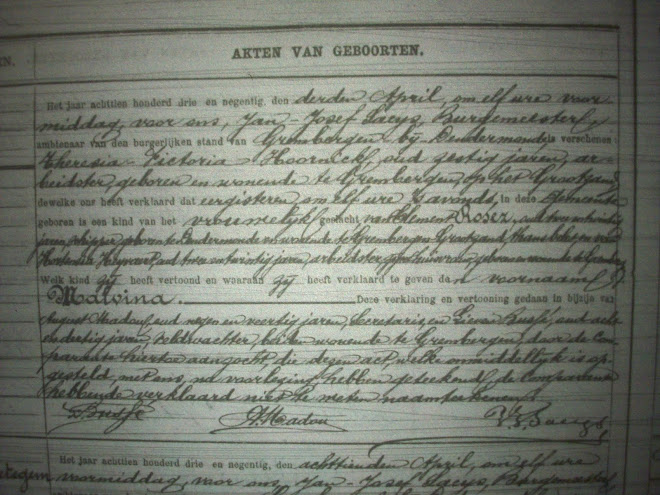 EN.
AKTEN VAN GEBOORTEN.
Het jaar achttien honderd drie en negentig, den derden April, om elf ure voor
middag, voor ons, Jan-Josef Saeys, Burgemeester,
ambtenaar van den burgerlijken stand van Grembergen bij Dendermonde is verschenen
Theresia-Victoria Hoornick, oud zestig jaren, ar-
beidster, geboren en wonende te Grembergen, op het Grootzand,
dewelke ons heeft verklaard dat eergisteren, om elf ure 's avonds, in deze Gemeente
geboren is een kind van het vrouwelijk geslacht van Clement oud twee en twintig
jaren, schipper, geboren te Dendermonde en wonende te Grembergen, Grootzand, en van
Hortensia oud twee en twintig jaren, arbeidster, geboren en wonende te
Welk kind zij heeft vertoond en waaraan zij heeft verklaard te geven den voornaam
Malvina. Deze verklaring en vertooning gedaan in bijzijn van
August Madou, oud negen en veertig jaren, Secretaris, en Livien Busse, oud acht
en dertig jaren, veldwachter, beiden wonende te Grembergen, door de Com-
parante hiertoe aangezocht, die dezen act, welke onmiddellijk is op-
gesteld, met ons, na voorlezing hebben geteekend, de Comparante
hebbende verklaard niet te weten naamteekenen.
L. Busse A. Madou J. J. Saeys
Het jaar achttien honderd drie en negentig, den achttienden April, om elf ure
voormiddag, voor ons, Jan-Josef Saeys, Burgemeester